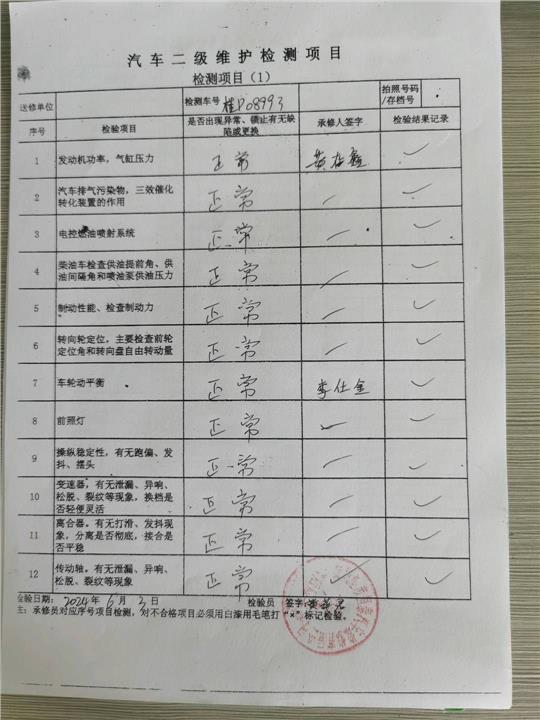 汽车二级维护检测项目
检测项目（1）
送修单位 检测车号 桂P08993 拍照号码/存档号
序号 检验项目 是否出现异常、锁止有无缺陷或更换 承修人签字 检验结果记录
1 发动机功率，气缸压力 正常 ✓
2 汽车排气污染物，三效催化转化装置的作用 正常 ✓
3 电控燃油喷射系统 正常 ✓
4 柴油车检查供油提前角、供油间隔角和喷油泵供油压力 正常 ✓
5 制动性能、检查制动力 正常 ✓
6 转向轮定位，主要检查前轮定位角和转向盘自由转动量 正常 ✓
7 车轮动平衡 正常 李仕金 ✓
8 前照灯 正常 ✓
9 操纵稳定性，有无跑偏、发抖、摆头 正常 ✓
10 变速器，有无泄漏、异响、松脱、裂纹等现象，换档是否轻便灵活 正常 ✓
11 离合器。有无打滑、发抖现象，分离是否彻底，接合是否平稳 正常 ✓
12 传动轴。有无泄漏、异响、松脱、裂纹等现象 正常 ✓
检验日期：2024年6月3日 检验员 签字
主：承修员对应序号项目检测，对不合格项目必须用白漆用毛笔打“×”标记检验。